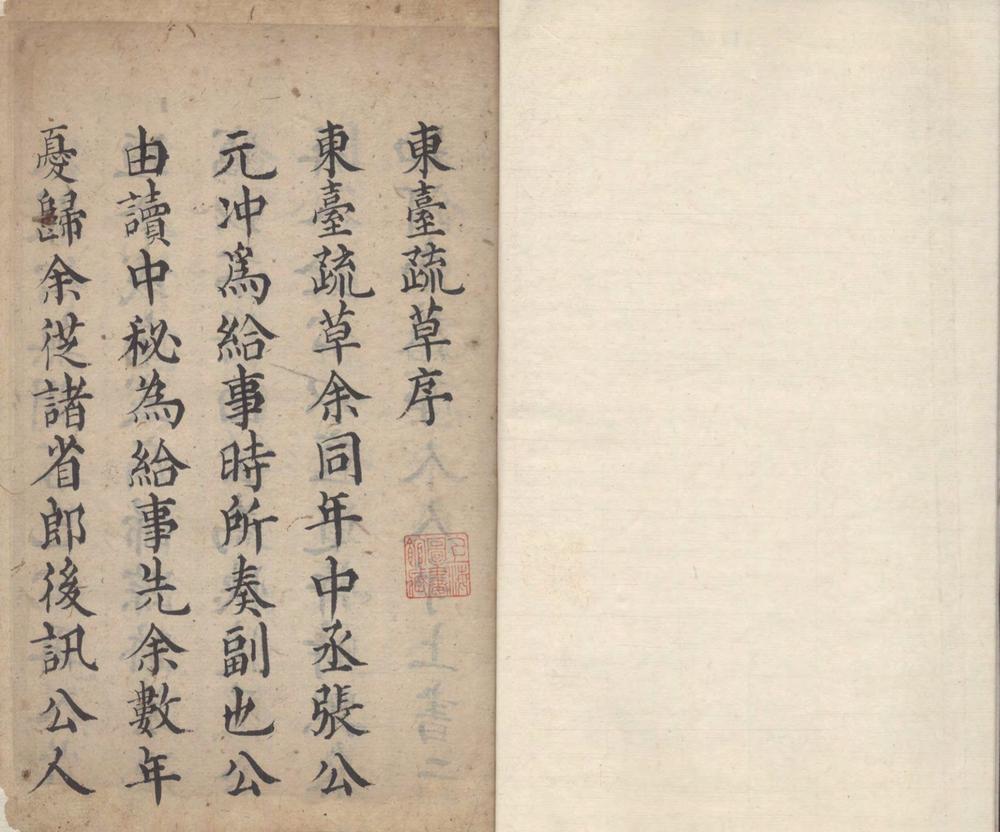 東臺疏草序
東臺疏草余同年中丞張公
元冲爲給事時所奏副也公
由讀中秘為給事先余數年
憂歸余從諸省郎後訊公人